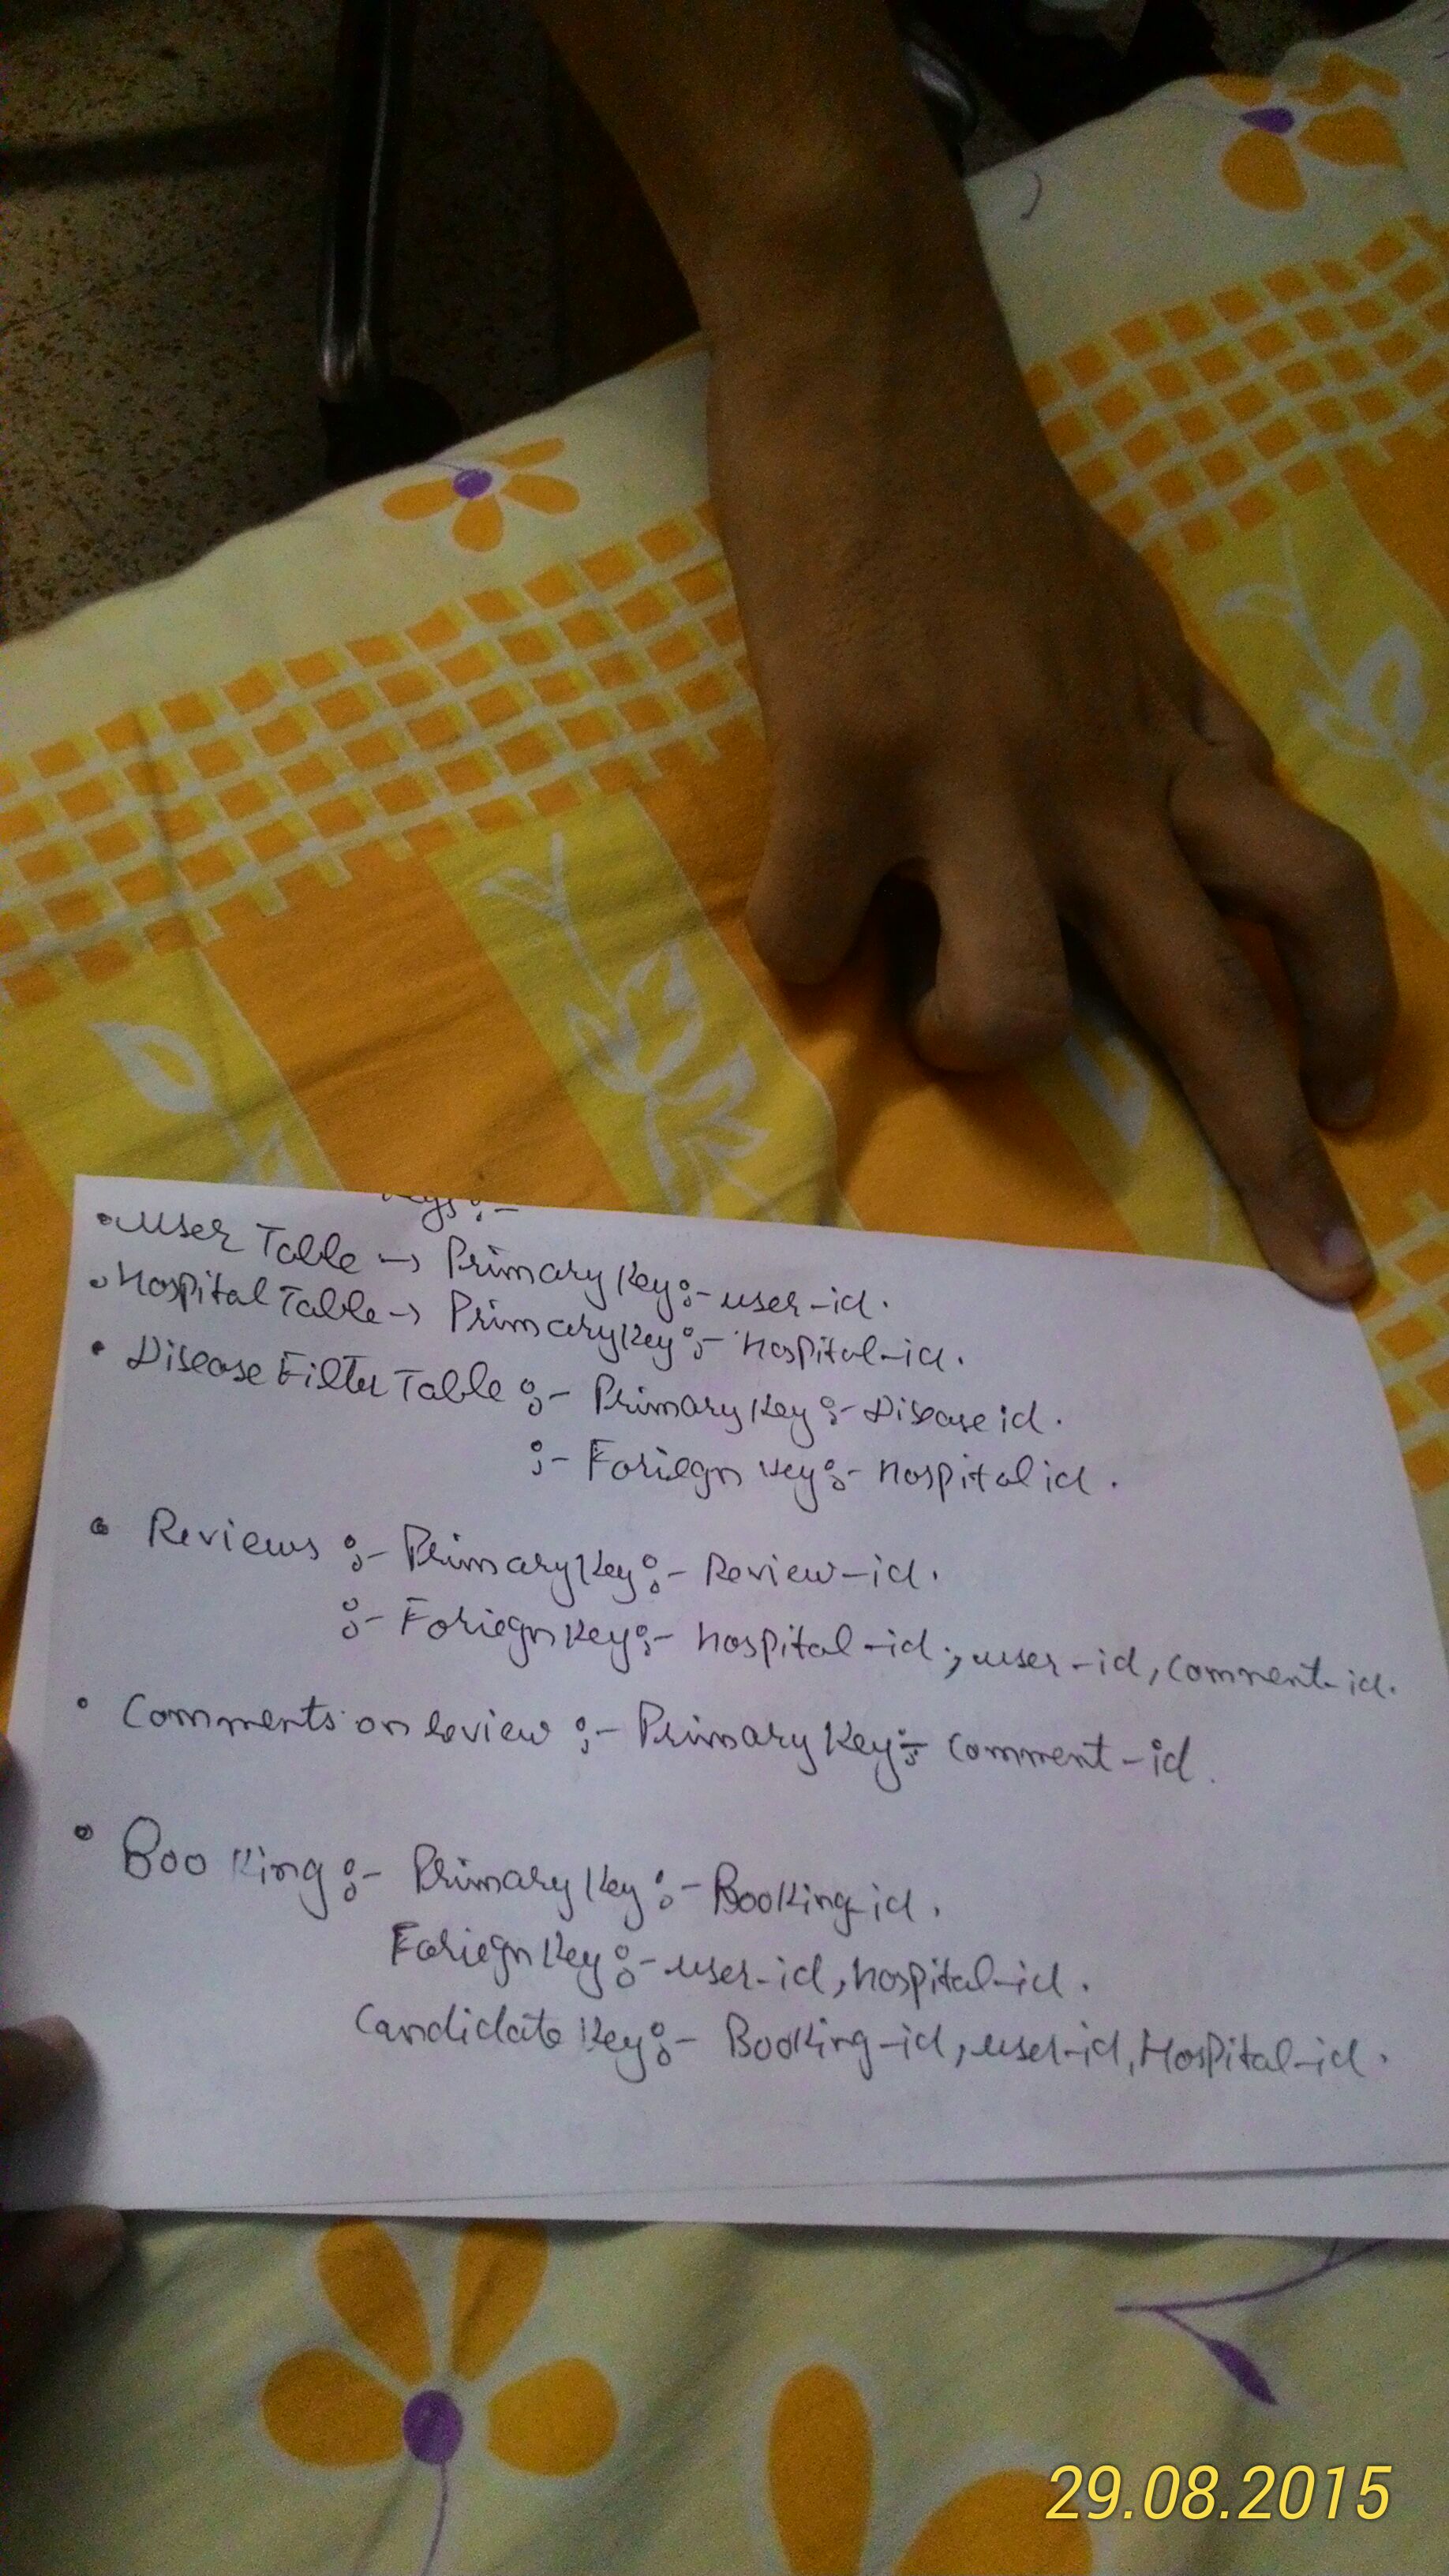 Keys:-
• user Table → Primary Key:- user-id.
• Hospital Table → Primary Key:- hospital-id.
• Disease Filter Table :- Primary Key :- Disease id.
:- Foriegn key:- hospital id.
• Reviews :- Primary Key:- Review-id.
:- Foriegn Key:- hospital-id, user-id, comment-id.
• Comments on review :- Primary Key:- comment-id.
• Booking:- Primary Key:- Booking-id.
Foriegn Key:- user-id, hospital-id.
Candidate Key:- Booking-id, user-id, Hospital-id.
29.08.2015